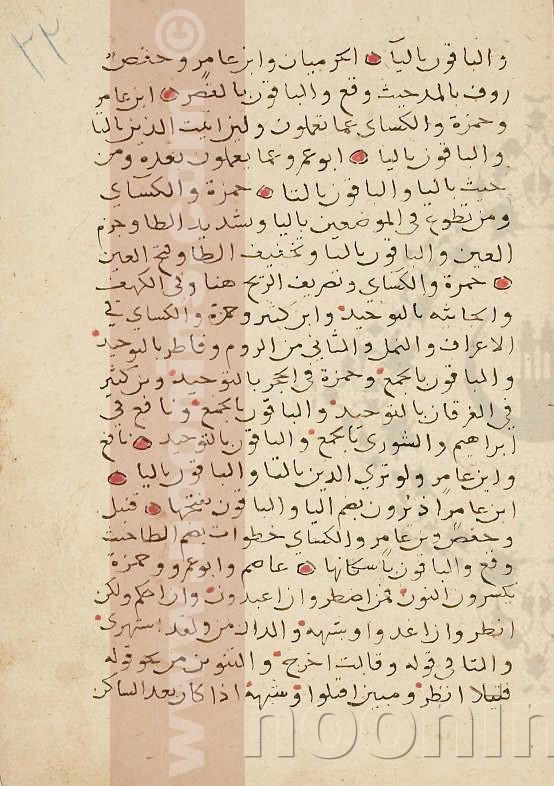 ٢٢
والباقون بالياء الحرميان وابن عامر وحفص
روف بالمد حيث وقع والباقون بالقصر ابن عامر
وحمزة والكساى عما تعملون ولين اتيت الذين بالتا
والباقون باليا ابو عمرو عما يعملون بعده ومن
حيث باليا والباقون بالتا حمزة والكساي
ومن تطوع في الموضعين باليا وتشديد الطا وجزم
العين والباقون بالتا وتخفيف الطا وفتح العين
حمزة والكساي وتصريف الريح هنا وفي الكهف
والجاثيه بالتوحيد وابن كثير وحمزة والكساي في
الاعراف والنمل والثاني من الروم وفاطر بالتوحيد
والباقون بالجمع وحمزة في الحجر بالتوحيد وبن كثير
في الفرقان بالتوحيد والباقون بالجمع ونافع في
ابراهيم والشورى بالجمع والباقون بالتوحيد نافع
وابن عامر ولو تري الذين بالتا والباقون باليا
ابن عامر اذ يرون بضم اليا والباقون بفتحها قنبل
وحفص وبن عامر والكساي خطوات بضم الطا حيث
وقع والباقون باسكانها عاصم وابو عمرو وحمزة
يكسرون النون فمن اضطر وان اعبدون وان احكم ولكن
انظر وان اغدوا وشبهه والدال من ولقد استهزى
والتا في قوله وقالت اخرج والتنوين من نحو قوله
فتيلا انظر ومبين اقتلوا وشبهه اذا كان بعد الساكن
www.noonimages.com ©
noonim